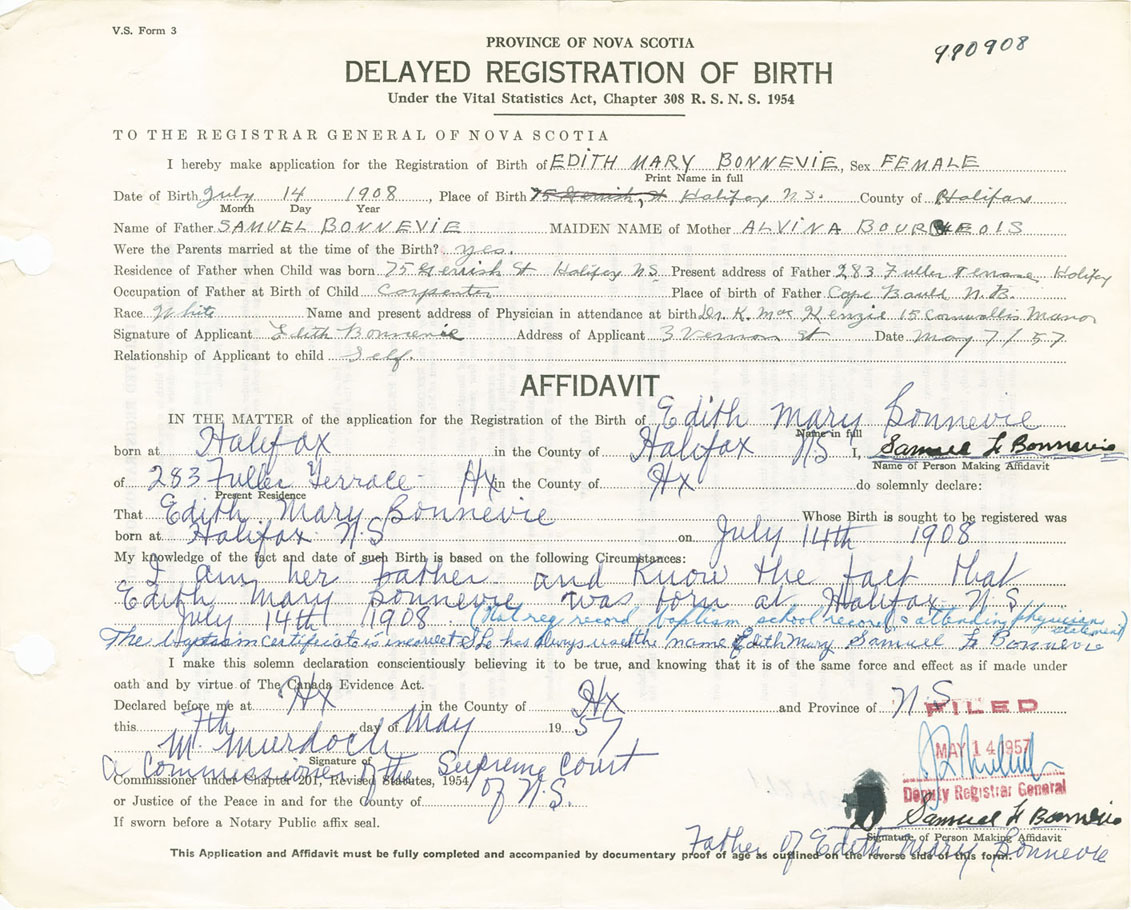 V.S. Form 3
PROVINCE OF NOVA SCOTIA
980908
DELAYED REGISTRATION OF BIRTH
Under the Vital Statistics Act, Chapter 308 R. S. N. S. 1954
TO THE REGISTRAR GENERAL OF NOVA SCOTIA
I hereby make application for the Registration of Birth of EDITH MARY BONNEVIE, Sex FEMALE
Print Name in full
Date of Birth July 14 1908, Place of Birth 75 Gerrish St Halifax N.S. County of Halifax
Month Day Year
Name of Father SAMUEL BONNEVIE MAIDEN NAME of Mother ALVINA BOURGEOIS
Were the Parents married at the time of the Birth? yes.
Residence of Father when Child was born 75 Gerrish St Halifax NS Present address of Father 283 Fuller Terrace Halifax
Occupation of Father at Birth of Child Carpenter Place of birth of Father Cape Bauld N.B.
Race White Name and present address of Physician in attendance at birth Dr. K. MacKenzie 15 Cornwallis Manor
Signature of Applicant Edith Bonnevie Address of Applicant 3 Vernon St Date May 7/57
Relationship of Applicant to child Self.
AFFIDAVIT
IN THE MATTER of the application for the Registration of the Birth of Edith Mary Bonnevie
Name in full
born at Halifax in the County of Halifax NS I, Samuel F Bonnevie
Name of Person Making Affidavit
of 283 Fuller Terrace Hx in the County of Hx do solemnly declare:
Present Residence
That Edith Mary Bonnevie Whose Birth is sought to be registered was
born at Halifax N.S on July 14th 1908
My knowledge of the fact and date of such Birth is based on the following Circumstances:
I am her father and know the fact that
Edith Mary Bonnevie was born at Halifax N.S
July 14th 1908. (Not reg record baptism school record & attending physician statement)
The baptism certificate is incorrect She has always used the name Edith Mary Samuel F Bonnevie
I make this solemn declaration conscientiously believing it to be true, and knowing that it is of the same force and effect as if made under
oath and by virtue of The Canada Evidence Act.
Declared before me at Hx in the County of Hx and Province of N.S
FILED
this 7th day of May 1957
MAY 14 1957
M. Murdoch
Signature of
a Commissioner of the Supreme Court
Commissioner under Chapter 201, Revised Statutes, 1954/
of N.S.
Deputy Registrar General
or Justice of the Peace in and for the County of
Samuel F Bonnevie
If sworn before a Notary Public affix seal.
Signature of Person Making Affidavit
Father of Edith Mary Bonnevie
This Application and Affidavit must be fully completed and accompanied by documentary proof of age as outlined on the reverse side of this form.